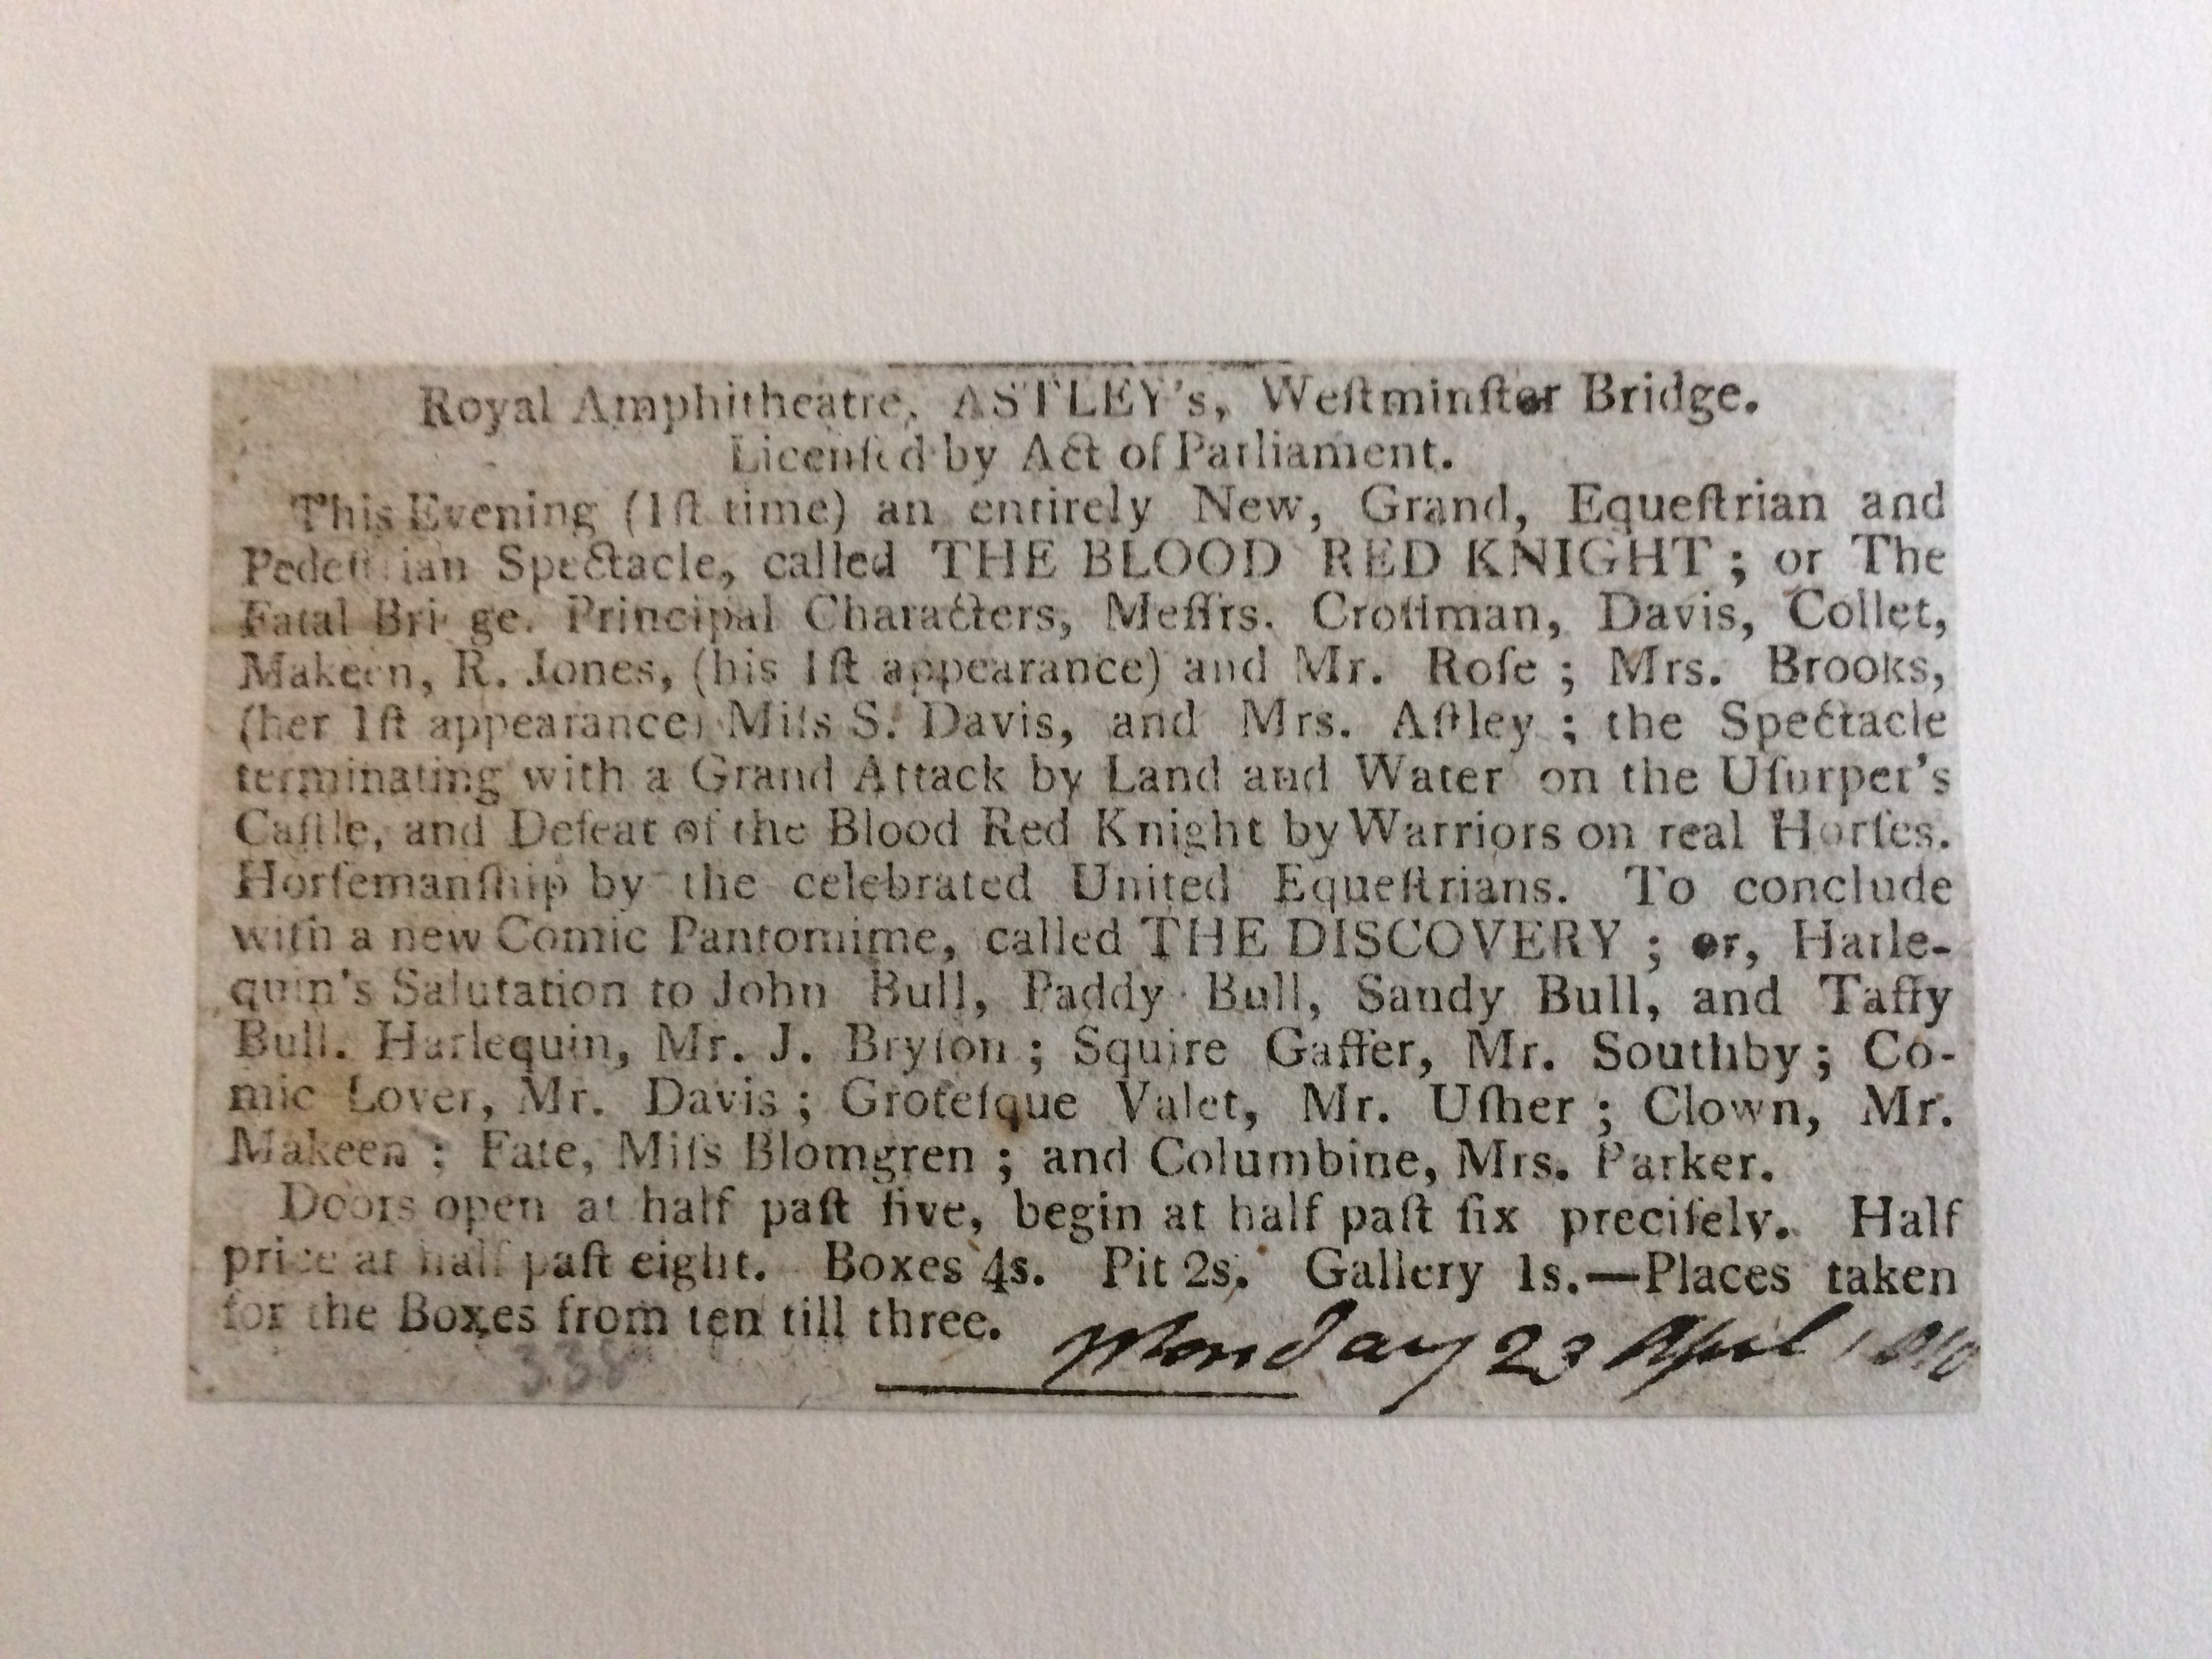 Royal Amphitheatre, ASTLEY's, Weſtminſter Bridge.
Licenſed by Act of Parliament.
This Evening (1ſt time) an entirely New, Grand, Equeſtrian and
Pedeſtrian Spectacle, called THE BLOOD RED KNIGHT ; or The
Fatal Bri ge. Principal Characters, Meſſrs. Croſſman, Davis, Collet,
Makeen, R. Jones, (his 1ſt appearance) and Mr. Roſe ; Mrs. Brooks,
(her 1ſt appearance) Miſs S. Davis, and Mrs. Aſtley ; the Spectacle
terminating with a Grand Attack by Land and Water on the Uſurper's
Caſtle, and Defeat of the Blood Red Knight by Warriors on real Horſes.
Horſemanſhip by the celebrated United Equeſtrians. To conclude
with a new Comic Pantomime, called THE DISCOVERY ; or, Harle-
quin's Salutation to John Bull, Paddy Bull, Sandy Bull, and Taffy
Bull. Harlequin, Mr. J. Bryſon ; Squire Gaffer, Mr. Southby ; Co-
mic Lover, Mr. Davis ; Groteſque Valet, Mr. Uſher ; Clown, Mr.
Makeen ; Fate, Miſs Blomgren ; and Columbine, Mrs. Parker.
Doors open at half paſt five, begin at half paſt ſix preciſely. Half
price at half paſt eight. Boxes 4s. Pit 2s. Gallery 1s.—Places taken
for the Boxes from ten till three.
Monday 23 April 1810